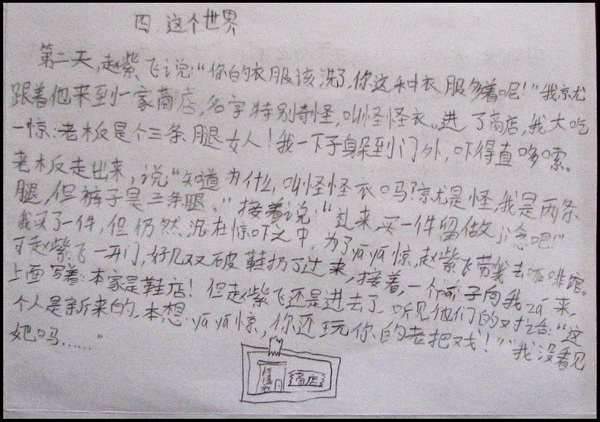 四 这个世界
第二天,赵紫飞说:“你的衣服该洗了,你这种衣服多着呢!”我就
跟着他来到一家商店,名字特别奇怪,叫怪怪衣。进了商店,我大吃
一惊:老板是个三条腿女人!我一下子躲到门外,吓得直哆嗦。
老板走出来,说“知道为什么叫怪怪衣吗?就是怪,我是两条
腿,但裤子是三条腿。”接着说:“过来,买一件留做纪念吧!”
我买了一件,但仍然沉在惊吓之中,为了压压惊,赵紫飞带我去咖啡馆。
可赵紫飞一开门,好几双破鞋扔了过来,接着,一个 子向我zá来,
上面写着:本家是鞋店!但赵紫飞还是进去了,听见他们的对话:“这
个人是新来的,本想压压惊,你还玩你的老把戏!”“我没看见
她吗……”
商店